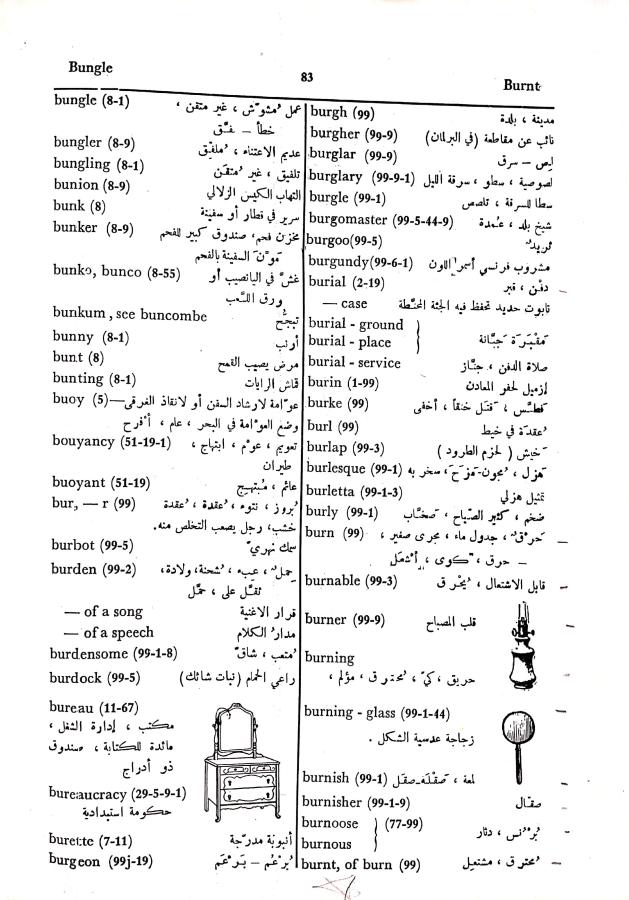 Bungle
83
Burnt
bungle (8-1) عمل مُشوّش ، غير متقن ،
خطأ – لفّق
bungler (8-9) عديم الاعتناء ، مُلفِّق
bungling (8-1) تلفيق ، غير مُتقَن
bunion (8-9) التهاب الكيس الزلالي
bunk (8) سرير في قطار أو سفينة
bunker (8-9) مخزن فحم، صندوق كبير للفحم
مَوّنَ السفينة بالفحم
bunko, bunco (8-55) غشّ في اليانصيب أو
ورق اللّعب
bunkum, see buncombe تبجُّح
bunny (8-1) أرنب
bunt (8) مرض يصيب القمح
bunting (8-1) قماش الرايات
buoy (5)—عوّامة لارشاد السفن أو لانقاذ الغرقى
وضع العوّامة في البحر ، عام ، أفرح
bouyancy (51-19-1) تعويم ، عوْم ، ابتهاج ،
طيران
buoyant (51-19) عائم ، مُبتهِج
bur, — r (99) بُروز ، نتوء ، عُقدة ، عُقدة
خشب، رجل يصعب التخلص منه.
burbot (99-5) سمك نهريّ
burden (99-2) حِملٌ ، عبء ، شحنة، ولادة،
ثقّل على ، حمّل
— of a song قرار الاغنية
— of a speech مدار الكلام
burdensome (99-1-8) مُتعب ، شاقّ
burdock (99-5) راعي الحمام (نبات شائك)
bureau (11-67)
مكتب ، إدارة الشغل ،
مائدة للكتابة ، صندوق
ذو أدراج
bureaucracy (29-5-9-1)
حكومة استبدادية
burette (7-11) أنبوبة مدرّجة
burgeon (99j-19) بُرْعُم – بَرْعَم
burgh (99) مدينة ، بلدة
burgher (99-9) نائب عن مقاطعة (في البرلمان)
burglar (99-9) لص – سرق
burglary (99-9-1) لصوصية ، سطو ، سرقة الليل
burgle (99-1) سطا للسرقة ، تلصص
burgomaster (99-5-44-9) شيخ بلد ، عُمدة
burgoo(99-5) ثريدٌ
burgundy(99-6-1) مشروب فرنسي أسمر اللون
burial (2-19) دفْن ، قبر
— case تابوت حديد تحفظ فيه الجثة المحنّطة
burial - ground
burial - place مَقْبَرَة جَبّانة
burial - service صلاة الدفن ، جنّاز
burin (1-99) إزميل لحفر المعادن
burke (99) فَطّسَ ، قَتَل خنقاً ، أخفى
burl (99) عُقدَة في خيط
burlap (99-3) خَيش ( لحزم الطرود )
burlesque (99-1) هزل ، مُجون-مَزَح ، سخر به
burletta (99-1-3) تمثيل هزلي
burly (99-1) ضخم ، كثير الصّياح ، صخّاب
burn (99) حَرْقٌ ، جدول ماء ، مجرى صغير ،
حرق ، كوى ، أشعَل
burnable (99-3) قابل الاشتعال ، يُحْرق
burner (99-9) قلب المصباح
burning
حريق ، كيّ ، مُحترق ، مؤلم ،
burning - glass (99-1-44)
زجاجة عدسية الشكل .
burnish (99-1) لمعة ، صَقْلَة-صقل
burnisher (99-1-9) صقّال
burnoose (77-99)
burnous بُرْنُس ، دثار
burnt, of burn (99) مُحترق ، مشتعل